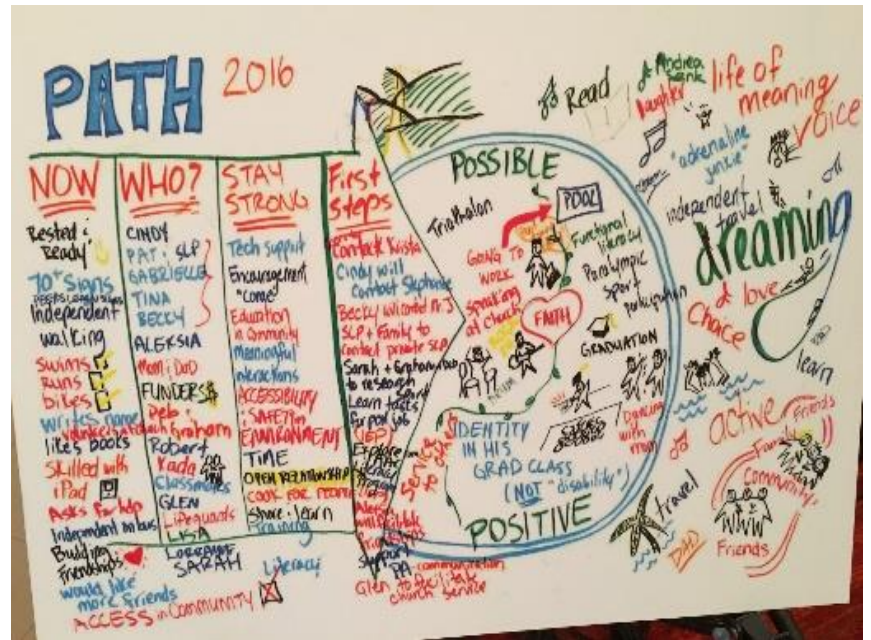 PATH 2016
NOW
Rested &
Ready
70+ Signs
Independent
walking
swims
runs
bikes
writes name
likes books
Skilled with
iPad
Asks for help
Independent on bus
Building
friendships
would like
more friends
ACCESS in Community
WHO?
CINDY
PAT. SLP
GABRIELLE
TINA
BECKY
ALEKSIA
Mom & DAD
FUNDERS
Deb &
Graham
Robert
Kada
Classmates
GLEN
Lifeguards
LISA
LORRAINE
SARAH
STAY
STRONG
Tech support
Encouragement
"come"
Education
in Community
Meaningful
interactions
ACCESSIBILITY
& SAFETY in
ENVIRONMENT
TIME
OPEN RELATIONSHIP
COOK FOR PEOPLE
share & learn
Training
Literacy
First
Steps
Contact Krista
Cindy will
contact Stephanie
Becky will contact Mr. J
SLP + Family to
contact private SLP
Sarah + Graham
to research
Learn tasks
for
(IEP)
Explore
friendships
Support
PA communication
Glen to facilitate
church service
POSSIBLE
Triathalon
POOL
GOING TO
WORK
Functional
literacy
Paralympic
Sport
participation
speaking
at church
FAITH
GRADUATION
Dancing
with mom
Service
to
IDENTITY
IN HIS
GRAD CLASS
(NOT "disability")
POSITIVE
Read
Andrea
laughter
life of
meaning
voice
"adrenaline
junkie"
independent
travel
dreaming
love
Choice
learn
active
Friends
Family
Community
Friends
travel
DAD